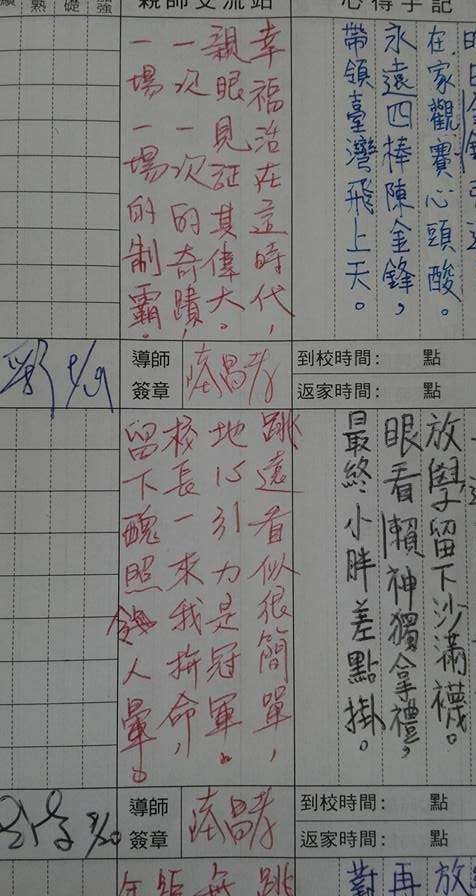 親師交流站
心得手記
熟
礎
強
在家觀賽心頭酸。
永遠四棒陳金鋒，
帶領臺灣飛上天。
幸福活在這時代，
親眼見証其偉大。
一次一次的奇蹟，
一場一場的制霸。
導師
簽章
到校時間： 點
返家時間： 點
放學留下沙滿襪。
眼看賴神獨拿禮，
最終小胖差點掛。
跳遠看似很簡單，
地心引力是冠軍。
校長一來我拚命，
留下醜照人暈。
導師
簽章
到校時間： 點
返家時間： 點
放
再
對
跳